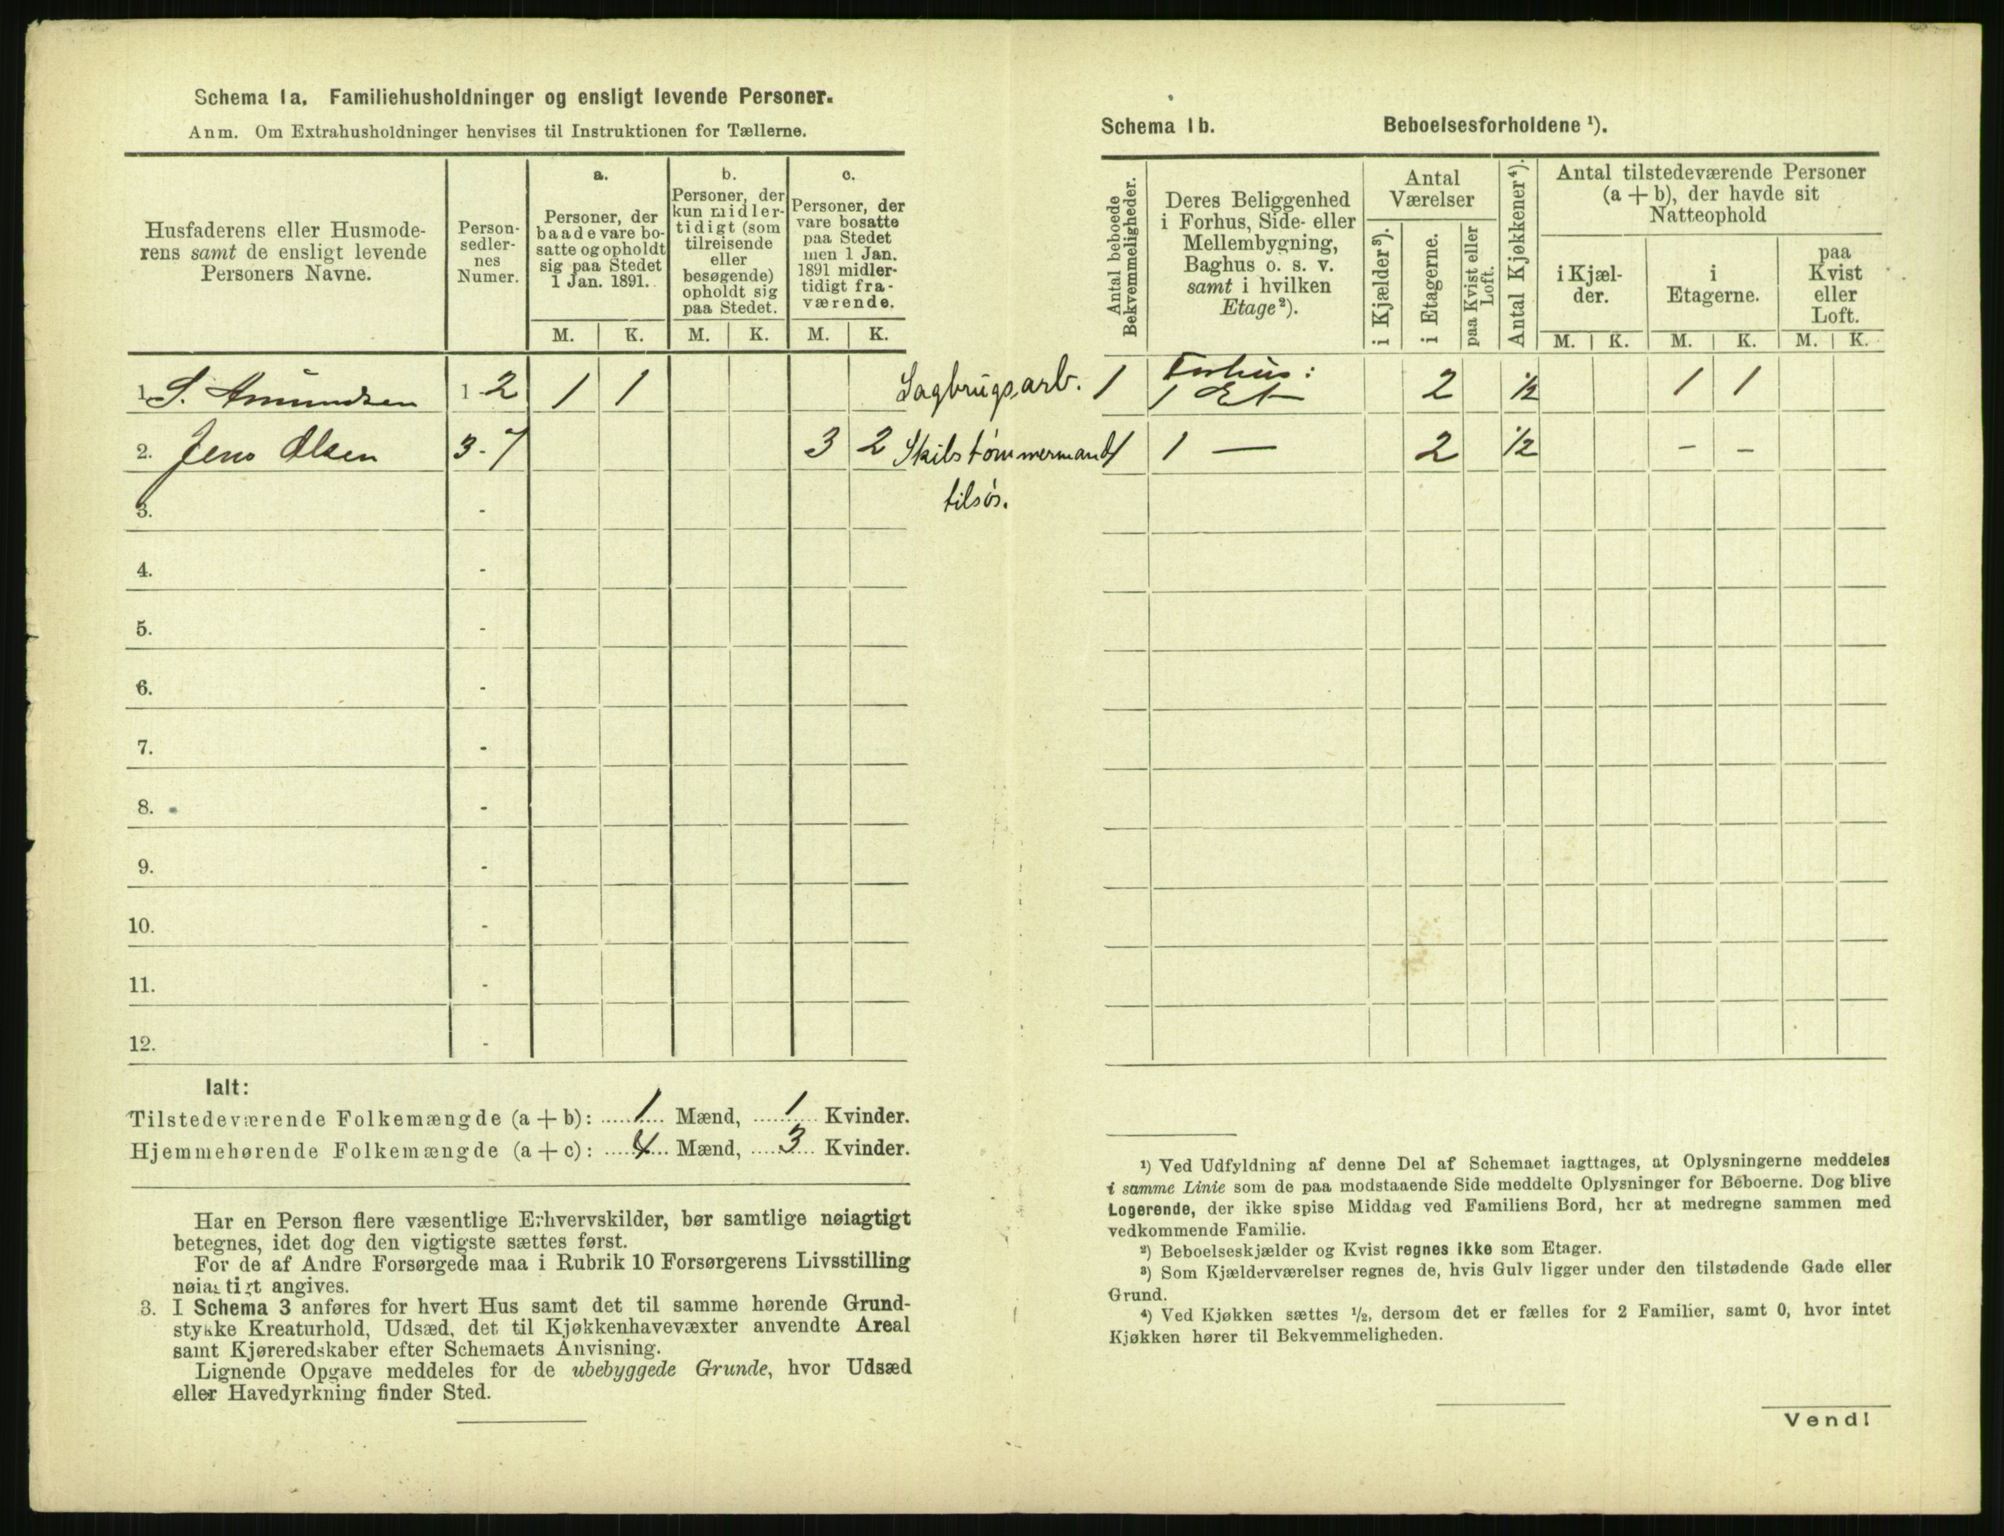 Schema 1a. Familiehusholdninger og ensligt levende Personer.
Anm. Om Extrahusholdninger henvises til Instruktionen for Tællerne.
Husfaderens eller Husmode-
rens samt de ensligt levende
Personers Navne.
Person-
sedler-
nes
Numer.
a.
Personer, der
baade vare bo-
satte og opholdt
sig paa Stedet
1 Jan. 1891.
b.
Personer, der
kun midler-
tidigt (som
tilreisende
eller
besøgende)
opholdt sig
paa Stedet.
c.
Personer, der
vare bosatte
paa Stedet
men 1 Jan.
1891 midler-
tidigt fra-
værende.
M. K. M. K. M. K.
1. S. Amundsen 1-2 1 1 Sagbrugsarb.
2. Jens Olsen 3-7 3 2 Skibstømmermand
tilsøs.
3. -
4. -
5. -
6. -
7. -
8. -
9. -
10. -
11. -
12. -
Ialt:
Tilstedeværende Folkemængde (a + b): 1 Mænd, 1 Kvinder.
Hjemmehørende Folkemængde (a + c): 4 Mænd, 3 Kvinder.
Har en Person flere væsentlige Erhvervskilder, bør samtlige nøiagtigt
betegnes, idet dog den vigtigste sættes først.
For de af Andre Forsørgede maa i Rubrik 10 Forsørgerens Livsstilling
nøiagtigt angives.
3. I Schema 3 anføres for hvert Hus samt det til samme hørende Grund-
stykke Kreaturhold, Udsæd, det til Kjøkkenhavevæxter anvendte Areal
samt Kjøreredskaber efter Schemaets Anvisning.
Lignende Opgave meddeles for de ubebyggede Grunde, hvor Udsæd
eller Havedyrkning finder Sted.
Schema 1b. Beboelsesforholdene ¹).
Antal beboede
Bekvemmeligheder.
Deres Beliggenhed
i Forhus, Side- eller
Mellembygning,
Baghus o. s. v.
samt i hvilken
Etage²).
Antal
Værelser
i Kjælder³).
i Etagerne.
paa Kvist eller
Loft.
Antal Kjøkkener⁴).
Antal tilstedeværende Personer
(a + b), der havde sit
Natteophold
i Kjæl-
der.
i
Etagerne.
paa
Kvist
eller
Loft.
M. K. M. K. M. K.
1 Forhus:
1 Et 2 ½ 1 1
1 1 — 2 ½ - -
¹) Ved Udfyldning af denne Del af Schemaet iagttages, at Oplysningerne meddeles
i samme Linie som de paa modstaaende Side meddelte Oplysninger for Beboerne. Dog blive
Logerende, der ikke spise Middag ved Familiens Bord, her at medregne sammen med
vedkommende Familie.
²) Beboelseskjælder og Kvist regnes ikke som Etager.
³) Som Kjælderværelser regnes de, hvis Gulv ligger under den tilstødende Gade eller
Grund.
⁴) Ved Kjøkken sættes ½, dersom det er fælles for 2 Familier, samt 0, hvor intet
Kjøkken hører til Bekvemmeligheden.
Vend!